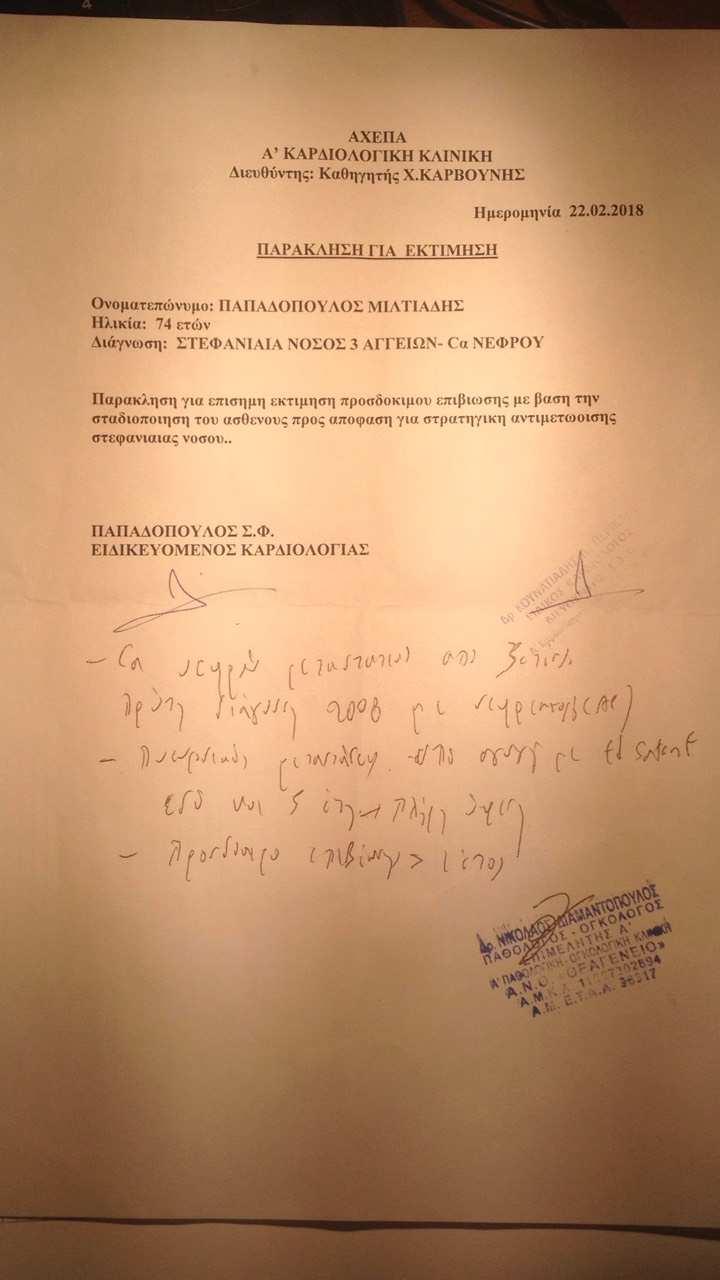 ΑΧΕΠΑ
Α' ΚΑΡΔΙΟΛΟΓΙΚΗ ΚΛΙΝΙΚΗ
Διευθύντης: Καθηγητής Χ.ΚΑΡΒΟΥΝΗΣ
Ημερομηνία 22.02.2018
ΠΑΡΑΚΛΗΣΗ ΓΙΑ ΕΚΤΙΜΗΣΗ
Ονοματεπώνυμο: ΠΑΠΑΔΟΠΟΥΛΟΣ ΜΙΛΤΙΑΔΗΣ
Ηλικία: 74 ετών
Διάγνωση: ΣΤΕΦΑΝΙΑΙΑ ΝΟΣΟΣ 3 ΑΓΓΕΙΩΝ- Ca ΝΕΦΡΟΥ
Παρακληση για επισημη εκτιμηση προσδοκιμου επιβιωσης με βαση την
σταδιοποιηση του ασθενους προς αποφαση για στρατηγικη αντιμετωοισης
στεφανιαιας νοσου..
ΠΑΠΑΔΟΠΟΥΛΟΣ Σ.Φ.
ΕΙΔΙΚΕΥΟΜΕΝΟΣ ΚΑΡΔΙΟΛΟΓΙΑΣ
- Ca νεφρού μεταστατικό από
Πρώτη διάγνωση 2008 με νεφρεκτομή (ΔΕ)
- Πνευμονικές μεταστάσεις υπό αγωγή με tb Sutent
εδώ και 5 έτη → πλήρη ύφεση
- Προσδόκιμο επιβίωσης > 1 έτος
Δρ. ΝΙΚΟΛΑΟΣ ΔΙΑΜΑΝΤΟΠΟΥΛΟΣ
ΠΑΘΟΛΟΓΟΣ - ΟΓΚΟΛΟΓΟΣ
ΕΠΙΜΕΛΗΤΗΣ Α'
Α' ΠΑΘΟΛΟΓΙΚΗ-ΟΓΚΟΛΟΓΙΚΗ ΚΛΙΝΙΚΗ
Α.Ν.Θ. «ΘΕΑΓΕΝΕΙΟ»
Α.Μ.Κ.Α.
Α.Μ. Ε.Τ.Α.Α.